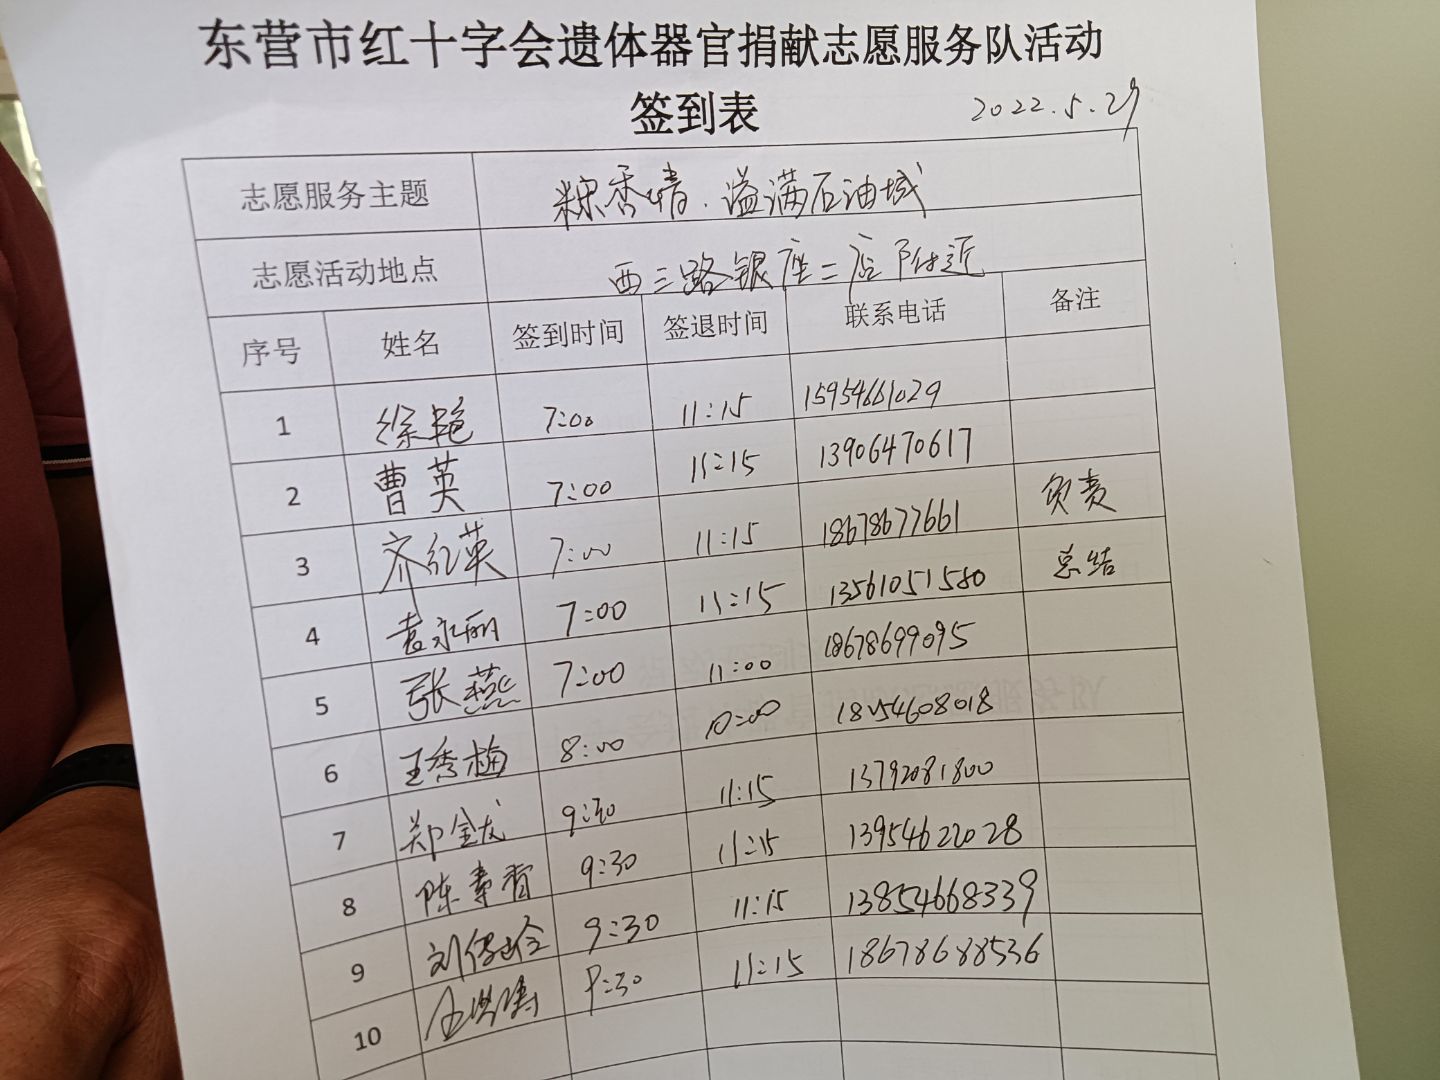 东营市红十字会遗体器官捐献志愿服务队活动
签到表
2022.5.29
志愿服务主题 粽香情.溢满石油城
志愿活动地点 西三路银座二店附近
序号 姓名 签到时间 签退时间 联系电话 备注
1 徐艳 7:00 11:15 15954661029
2 曹英 7:00 11:15 13906470617
3 齐红英 7:00 11:15 18678677661 负责
4 袁永丽 7:00 11:15 13561051580 总结
5 张燕 7:00 11:00 18678699095
6 王秀梅 8:00 10:00 18154608018
7 郑金龙 9:30 11:15 13792081800
8 陈寿香 9:30 11:15 13954622028
9 9:30 11:15 13854668339
10 9:30 11:15 18678688536